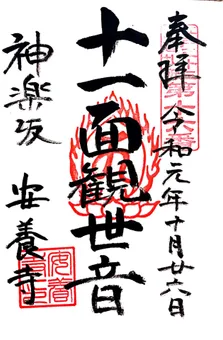 奉拝 令和元年十月廿六日
十一面観世音
神楽坂 安養寺